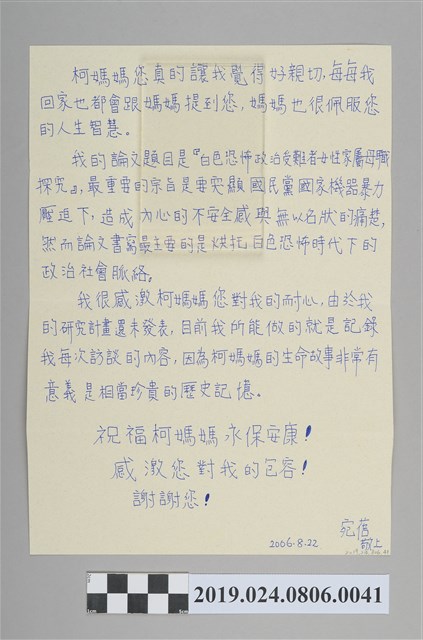 柯媽媽您真的讓我覺得好親切,每每我
回家也都會跟媽媽提到您,媽媽也很佩服您
的人生智慧。
我的論文題目是『白色恐怖政治受難者女性家屬母職
探究』,最重要的宗旨是要突顯國民黨國家機器暴力
壓迫下,造成內心的不安全感與無以名狀的痛楚,
然而論文書寫最主要的是烘托白色恐怖時代下的
政治社會脈絡。
我很感激柯媽媽您對我的耐心,由於我
的研究計畫還未發表,目前我所能做的就是記錄
我每次訪談的內容,因為柯媽媽的生命故事非常有
意義是相當珍貴的歷史記憶。
祝福柯媽媽永保安康!
感激您對我的包容!
謝謝您!
宛蓓
敬上
2006.8.22
2019.024.0806.0041